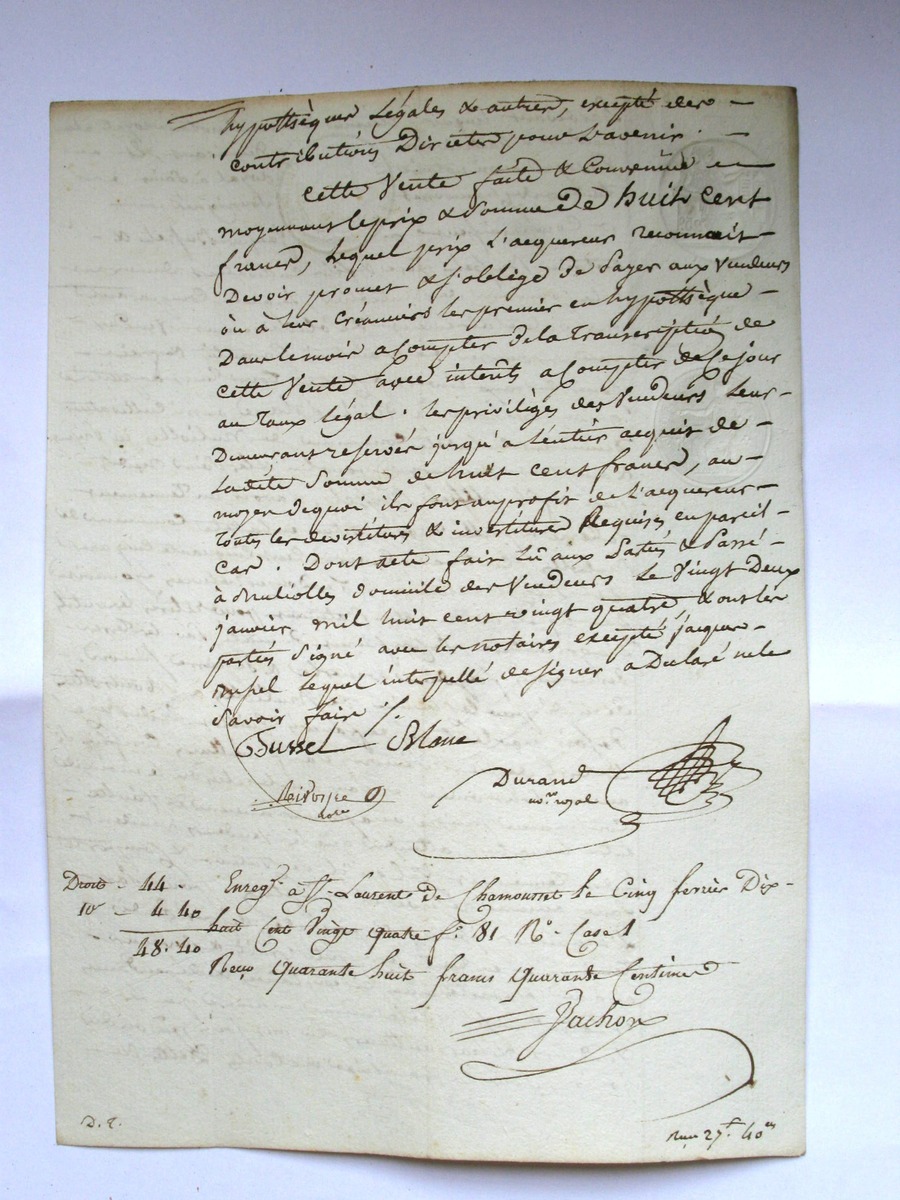 hypothèques Légales & autres, excepté des
contributions Directes pour L'avenir.
Cette Vente faite & Convenüe
moyennant le prix & Somme De huit Cent
francs, Lequel prix L'acquereur reconnait
Devoir promet & s'oblige De Payer aux Vendeurs
ôu à leur Créanciers les premier en hypothèque
Dans le mois a Compter de la transcription de
cette Vente avec interêts a Compter de Ce jour
au Taux légal. les privilèges des Vendeurs Leur
Demeurant reservés jusqu'a L'entier acquit de
La dite Somme de huit cent francs, au
moyen de quoi ils font au profit de L'acquereur
toutes les devestitures & investitures Requises en pareil
Cas. Dont acte fait Lû aux Parties & Passé
à domicile des Vendeurs Le Vingt Deux
janvier mil huit cent vingt quatre, & ont les
parties Signé avec les notaires excepté jacques
Lequel interpellé de signer a Declaré ne le
Savoir faire
Blanc
Durand
nore royal
Droit - 44 .
10e - 4 40
48 . 40
Enregé. à St. Laurent de Chamousset le Cinq fevrier Dix-
huit Cent Vingt quatre fo. 81 Ro. Case 1
Reçu Quarante huit francs Quarante Centimes
Vachon
Reçu 27f. 40es